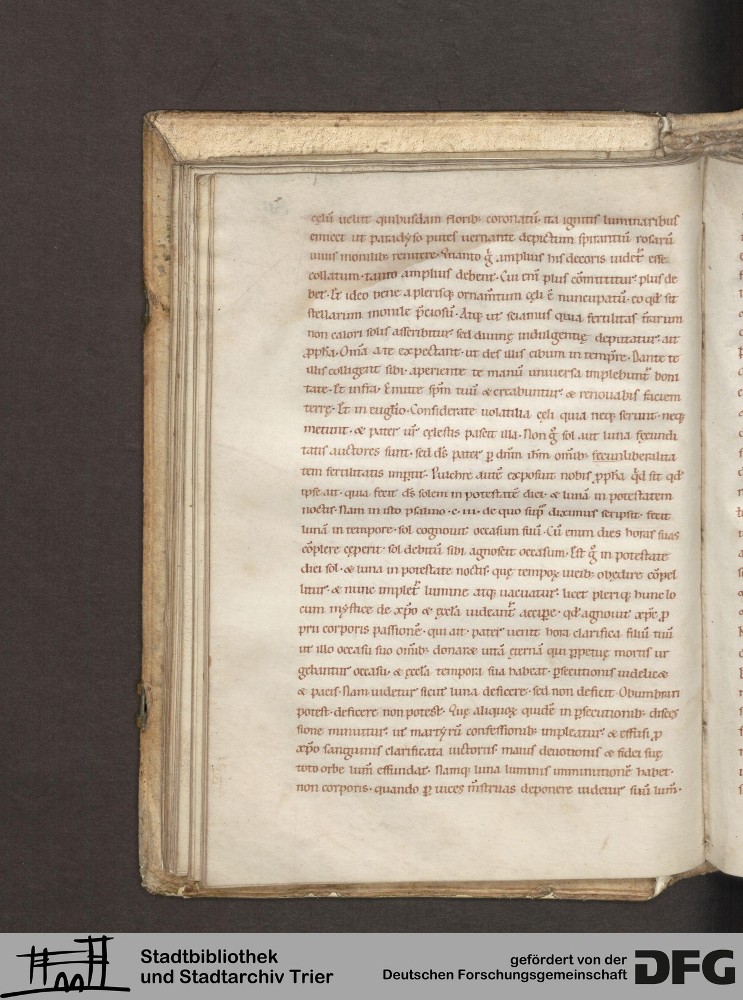 cęlū uelut quibusdam floribꝫ coronatū. ita ignitis luminaribus
emicet ut paradyso putes uernante depictum spirantiū rosarū
uiuis monilibꝫ renitere. Quanto g̊ amplius his decoris uidet᷑ esse
collatum. tanto amplius debent. Cui eni᷑ plus cōmittitur plus de
bet. Et ideo bene a plerisqꝫ ornam̄tum cęli ē nuncupatū. eo qđ sit
stellarum monile p̄ciosū. Atqꝫ ut sciamus quia fertilitas t̄rarum
non calori solis asseribitur. sed diuinę indulgentię deputatur. ait
ꝓpħa. Om̄a a te expectant ut des illis cibum in temp̄re. Dante te
illis colligent sibi. aperiente te manū uniuersa implebunt᷑ boni
tate. Et infra. Emitte sp̄m tuū & creabuntur. & renouabis faciem
terrę. Et in euglio. Considerate uolatilia cęli quia neqꝫ serunt. neqꝫ
metunt. & pater ur̄ cęlestis pascit illa. Non g̊ sol aut luna fęcundi
tatis auctores sunt. sed dš pater ꝑ dn̄m ihm̄ om̄ibꝫ fęcun liberalita
tem fertilitatis impertit. Pulchre autē exposuit nobis ꝓpħa qđ sit qđ
ipse ait. quia fecit dš solem in potestatē diei. & lunā in potestatem
noctis. Nam in isto psalmo .c.iii. de quo sup̄ diximus scripsit. fecit
lunā in tempore. sol cognouit occasum suū. Cū enim dies horas suas
cōplere cęperit. sol debitū sibi agnoscit occasum. Est g̊ in potestate
diei sol. & luna in potestate noctis. quę temporꝫ uicibꝫ obędire cōpel
litur. & nunc implet᷑ lumine atqꝫ uacuatur. licet pleriqꝫ hunc lo
cum mystice de xp̄o & ęccła uideant᷑ accipe. qđ agnouit xp̄c ꝓ
prii corporis passionē. qui ait. pater uenit hora clarifica filiū tuū
ut illo occasu suo om̄ibꝫ donaret uitā ęternā qui ꝑpetuę mortis ur
gebantur occasu. & ęccła tempora sua habeat. ꝑsecutionis uidelicet
& pacis. Nam uidetur sicut luna deficere. sed non deficit. Obumbrari
potest. deficere non potest. Quę aliquorꝫ quidē in ꝑsecutionibꝫ disces
sione minuitur. ut martyrū confessionibꝫ impleatur. & effusi ꝓ
xp̄o sanguinis clarificata uictoriis. maius deuotionis & fidei suę
toto orbe lum̄ effundat. Namqꝫ luna luminis imminutionē habet.
non corporis. quando ꝑ uices m̄struas deponere uidetur suū lum̄.
Stadtbibliothek
und Stadtarchiv Trier
gefördert von der
Deutschen Forschungsgemeinschaft
DFG